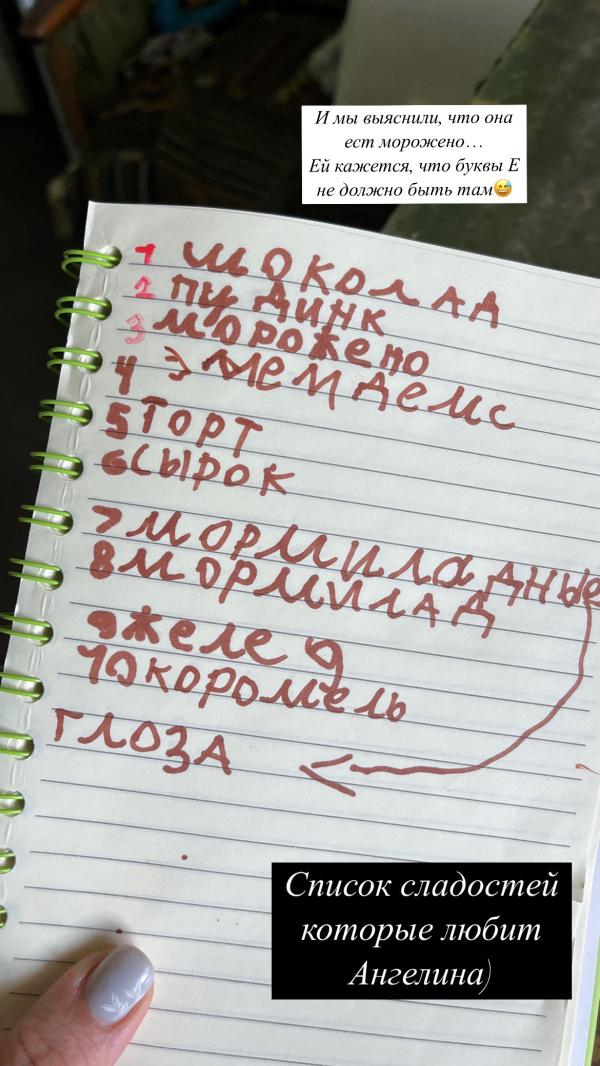 И мы выяснили, что она
ест морожено...
Ей кажется, что буквы Е
не должно быть там😅
1 ШОКОЛАД
2 ПУДИНК
3 МОРОЖЕНО
4 ЭМЕМДЕМС
5 ТОРТ
6 СЫРОК
7 МОРМИЛАДНЫЕ
8 МОРМИЛАД
9 ЖЕЛЕ
10 КОРОМЕЛЬ
ГЛОЗА
Список сладостей
которые любит
Ангелина)